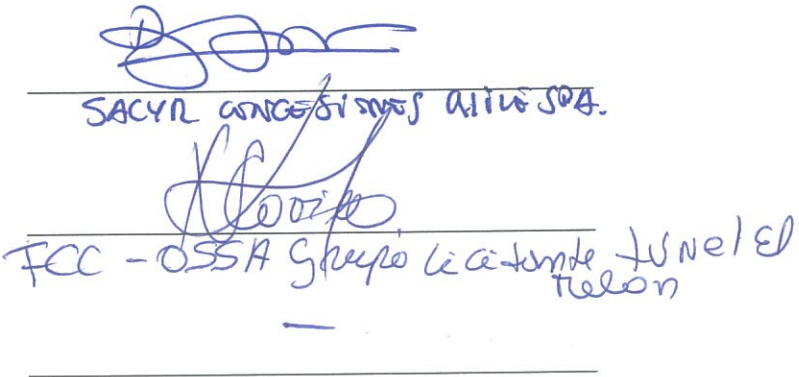 SACYR CONCESIONES CHILE SPA.
FCC - OSSA Grupo Licitante tuNel El
Melon